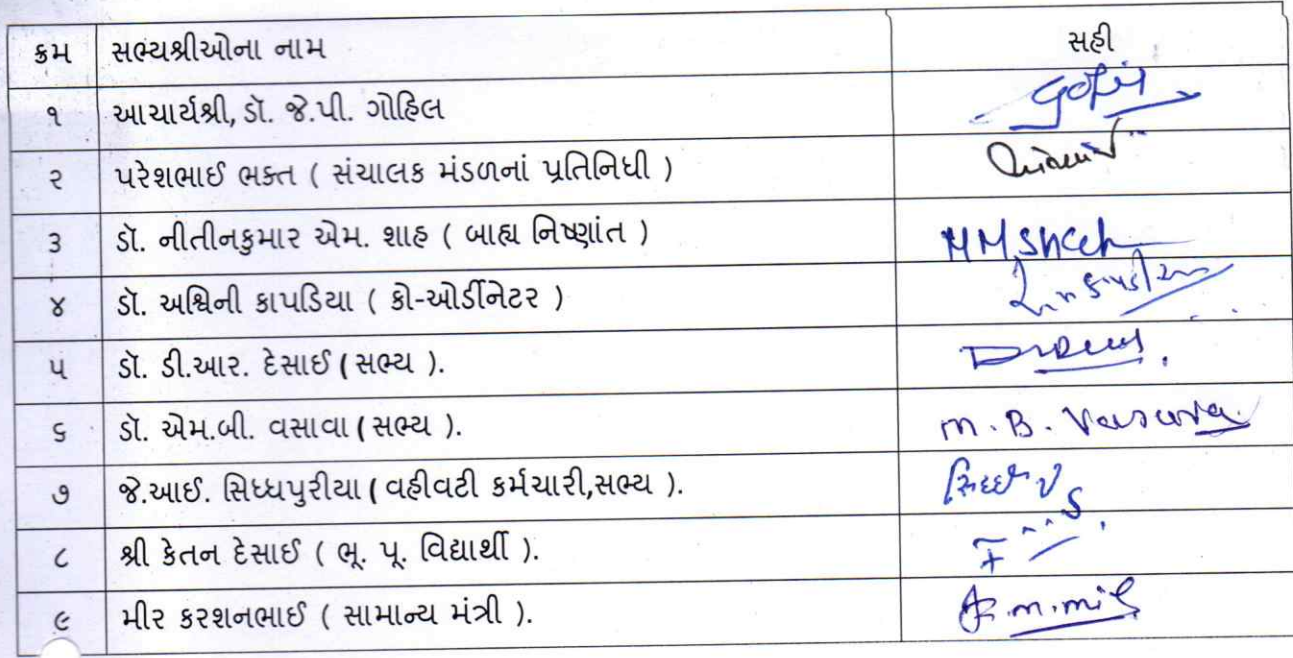 ક્રમ સભ્યશ્રીઓના નામ સહી
૧ આચાર્યશ્રી, ડૉ. જે.પી. ગોહિલ
૨ પરેશભાઈ ભક્ત ( સંચાલક મંડળનાં પ્રતિનિધી )
૩ ડૉ. નીતીનકુમાર એમ. શાહ ( બાહ્ય નિષ્ણાંત )
૪ ડૉ. અશ્વિની કાપડિયા ( કો-ઓર્ડીનેટર )
૫ ડૉ. ડી.આર. દેસાઈ ( સભ્ય ).
૬ ડૉ. એમ.બી. વસાવા ( સભ્ય ). M. B. Vasava
૭ જે.આઈ. સિધ્ધપુરીયા ( વહીવટી કર્મચારી,સભ્ય ).
૮ શ્રી કેતન દેસાઈ ( ભૂ. પૂ. વિદ્યાર્થી ).
૯ મીર કરશનભાઈ ( સામાન્ય મંત્રી ).